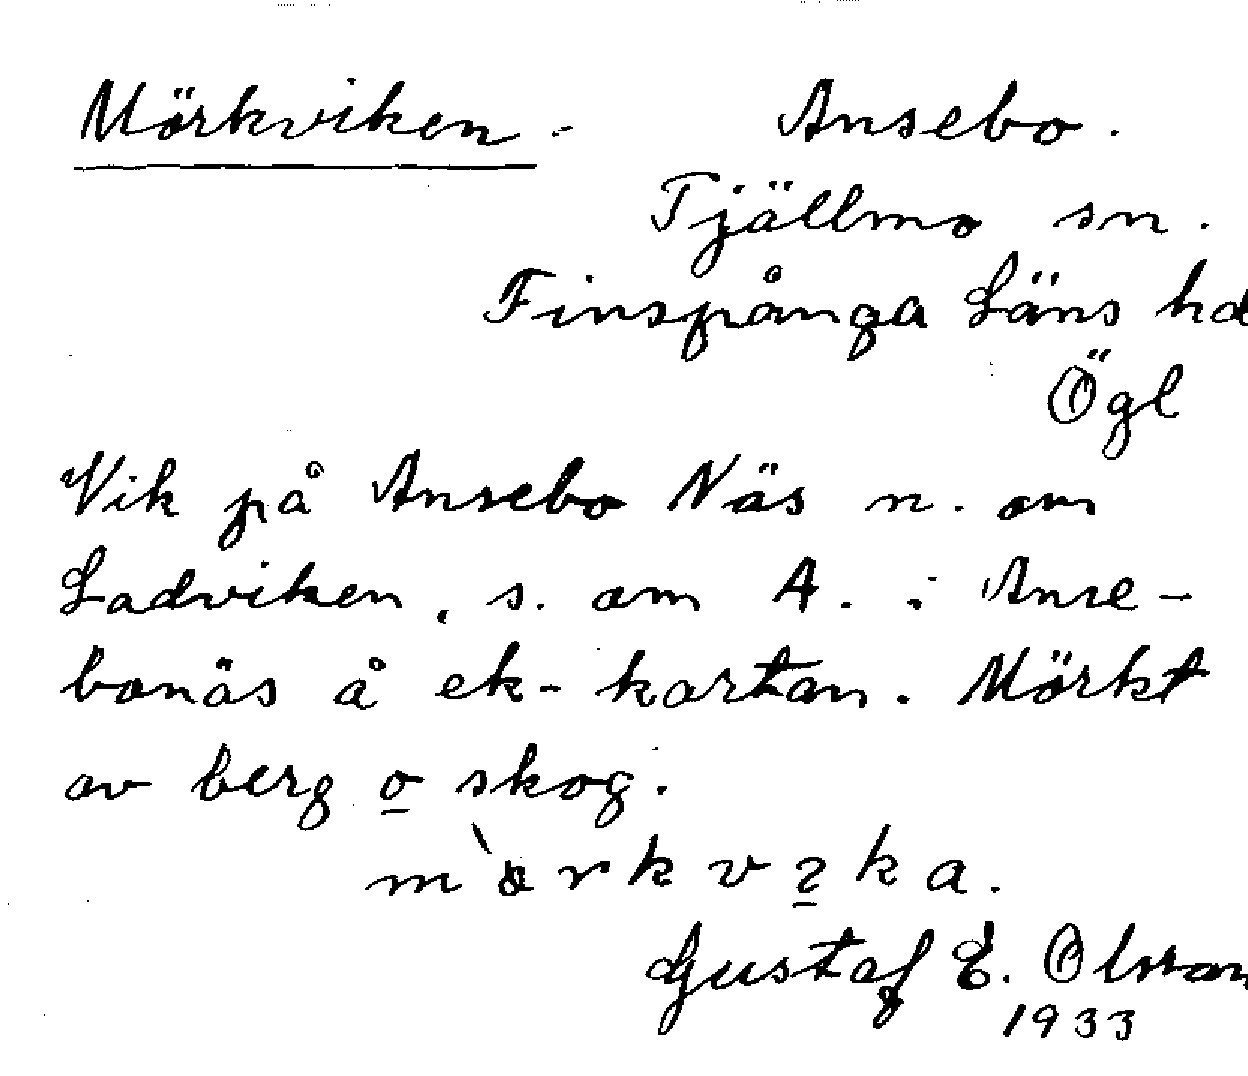 Mörkviken - Ansebo.
Tjällmo sn.
Finspånga Läns hd
Ögl
Vik på Ansebo Näs n. om
Ladviken, s. om A. i Anse-
bonäs å ek-kartan. Mörkt
av berg o skog.
Gustaf E. Olsson
1933